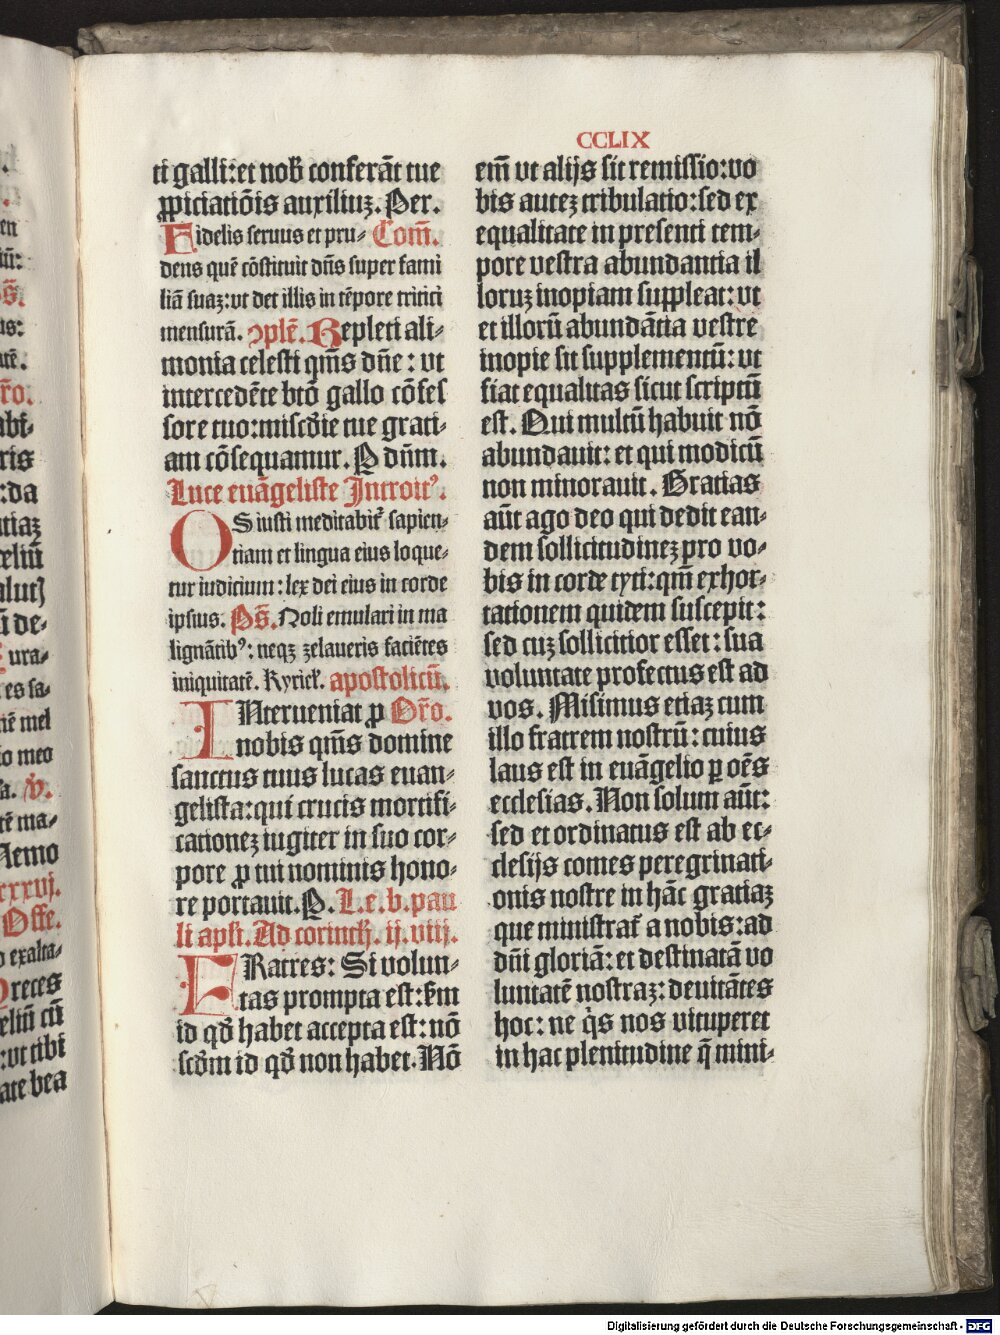 CCLIX
ti galli: et nob̄ conferāt tue
ꝓpiciatiōis auxiliuꝫ. Per.
Fidelis seruus et pru- Com̄.
dens quē cōstituit dn̄s super fami
liā suaꝫ: vt det illis in tēpore tritici
mensurā. ꝯplē. Repleti ali-
monia celesti qm̄s dn̄e: vt
intercedēte btō gallo cōfes
sore tuo: miscd̄ie tue grati-
am cōsequamur. P dn̄m.
Luce euāgeliste Introitꝰ.
OS iusti meditabit̄ sapien-
tiam et lingua eius loque-
tur iudicium: lex dei eius in corde
ipsius. Ps̄. Noli emulari in ma
lignātibꝰ: neqꝫ zelaueris faciētes
iniquitatē. Kyriel̄. apostolicū.
INterueniat ꝓ Or̄o.
nobis qm̄s domine
sanctus tuus lucas euan-
gelista: qui crucis mortifi-
cationeꝫ iugiter in suo cor-
pore ꝓ tui nominis hono-
re portauit. P. L. e. b. pau
li apl̄i. Ad corinth̄. ij. viij.
FRatres: Si volun-
tas prompta est: km̄
id qd̄ habet accepta est: nō
scd̄m id qd̄ non habet. Nō
em̄ vt alijs sit remissio: vo
bis auteꝫ tribulatio: sed ex
equalitate in presenti tem-
pore vestra abundantia il
loruꝫ inopiam suppleat: vt
et illorū abundātia vestre
inopie sit supplementū: vt
fiat equalitas sicut scriptū
est. Qui multū habuit nō
abundauit: et qui modicū
non minorauit. Gratias
aūt ago deo qui dedit ean-
dem sollicitudineꝫ pro vo-
bis in corde tyti: qm̄ exhor-
tationem quidem suscepit:
sed cuꝫ sollicitior esset: sua
voluntate profectus est ad
vos. Misimus etiaꝫ cum
illo fratrem nostrū: cuius
laus est in euāgelio ꝑ oēs
ecclesias. Non solum aūt:
sed et ordinatus est ab ec-
clesijs comes peregrinati-
onis nostre in hāc gratiaꝫ
que ministrat̄ a nobis: ad
dn̄i gloriā: et destinatā vo
luntatē nostraꝫ: deuitātes
hoc: ne q̇s nos vituperet
in hac plenitudine q̄ mini-
Digitalisierung gefördert durch die Deutsche Forschungsgemeinschaft - DFG